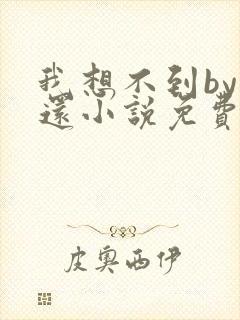 我想不到by
還小說免費
皮奧西伊